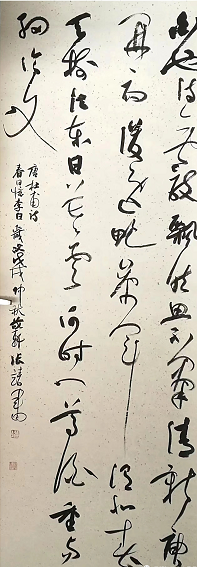 白也诗无敌飘然思不群清新庾
开府俊逸鲍参军渭北春
天树江东日暮云何时一尊酒重与
细论文
唐杜甫诗
春日忆李白岁次戊戌仲秋